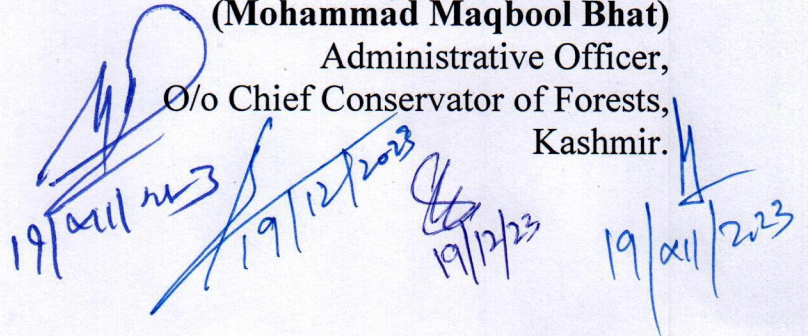 (Mohammad Maqbool Bhat)
Administrative Officer,
O/o Chief Conservator of Forests,
Kashmir.
19/XII/2023
19/12/2023
19/12/23
19/XII/2023